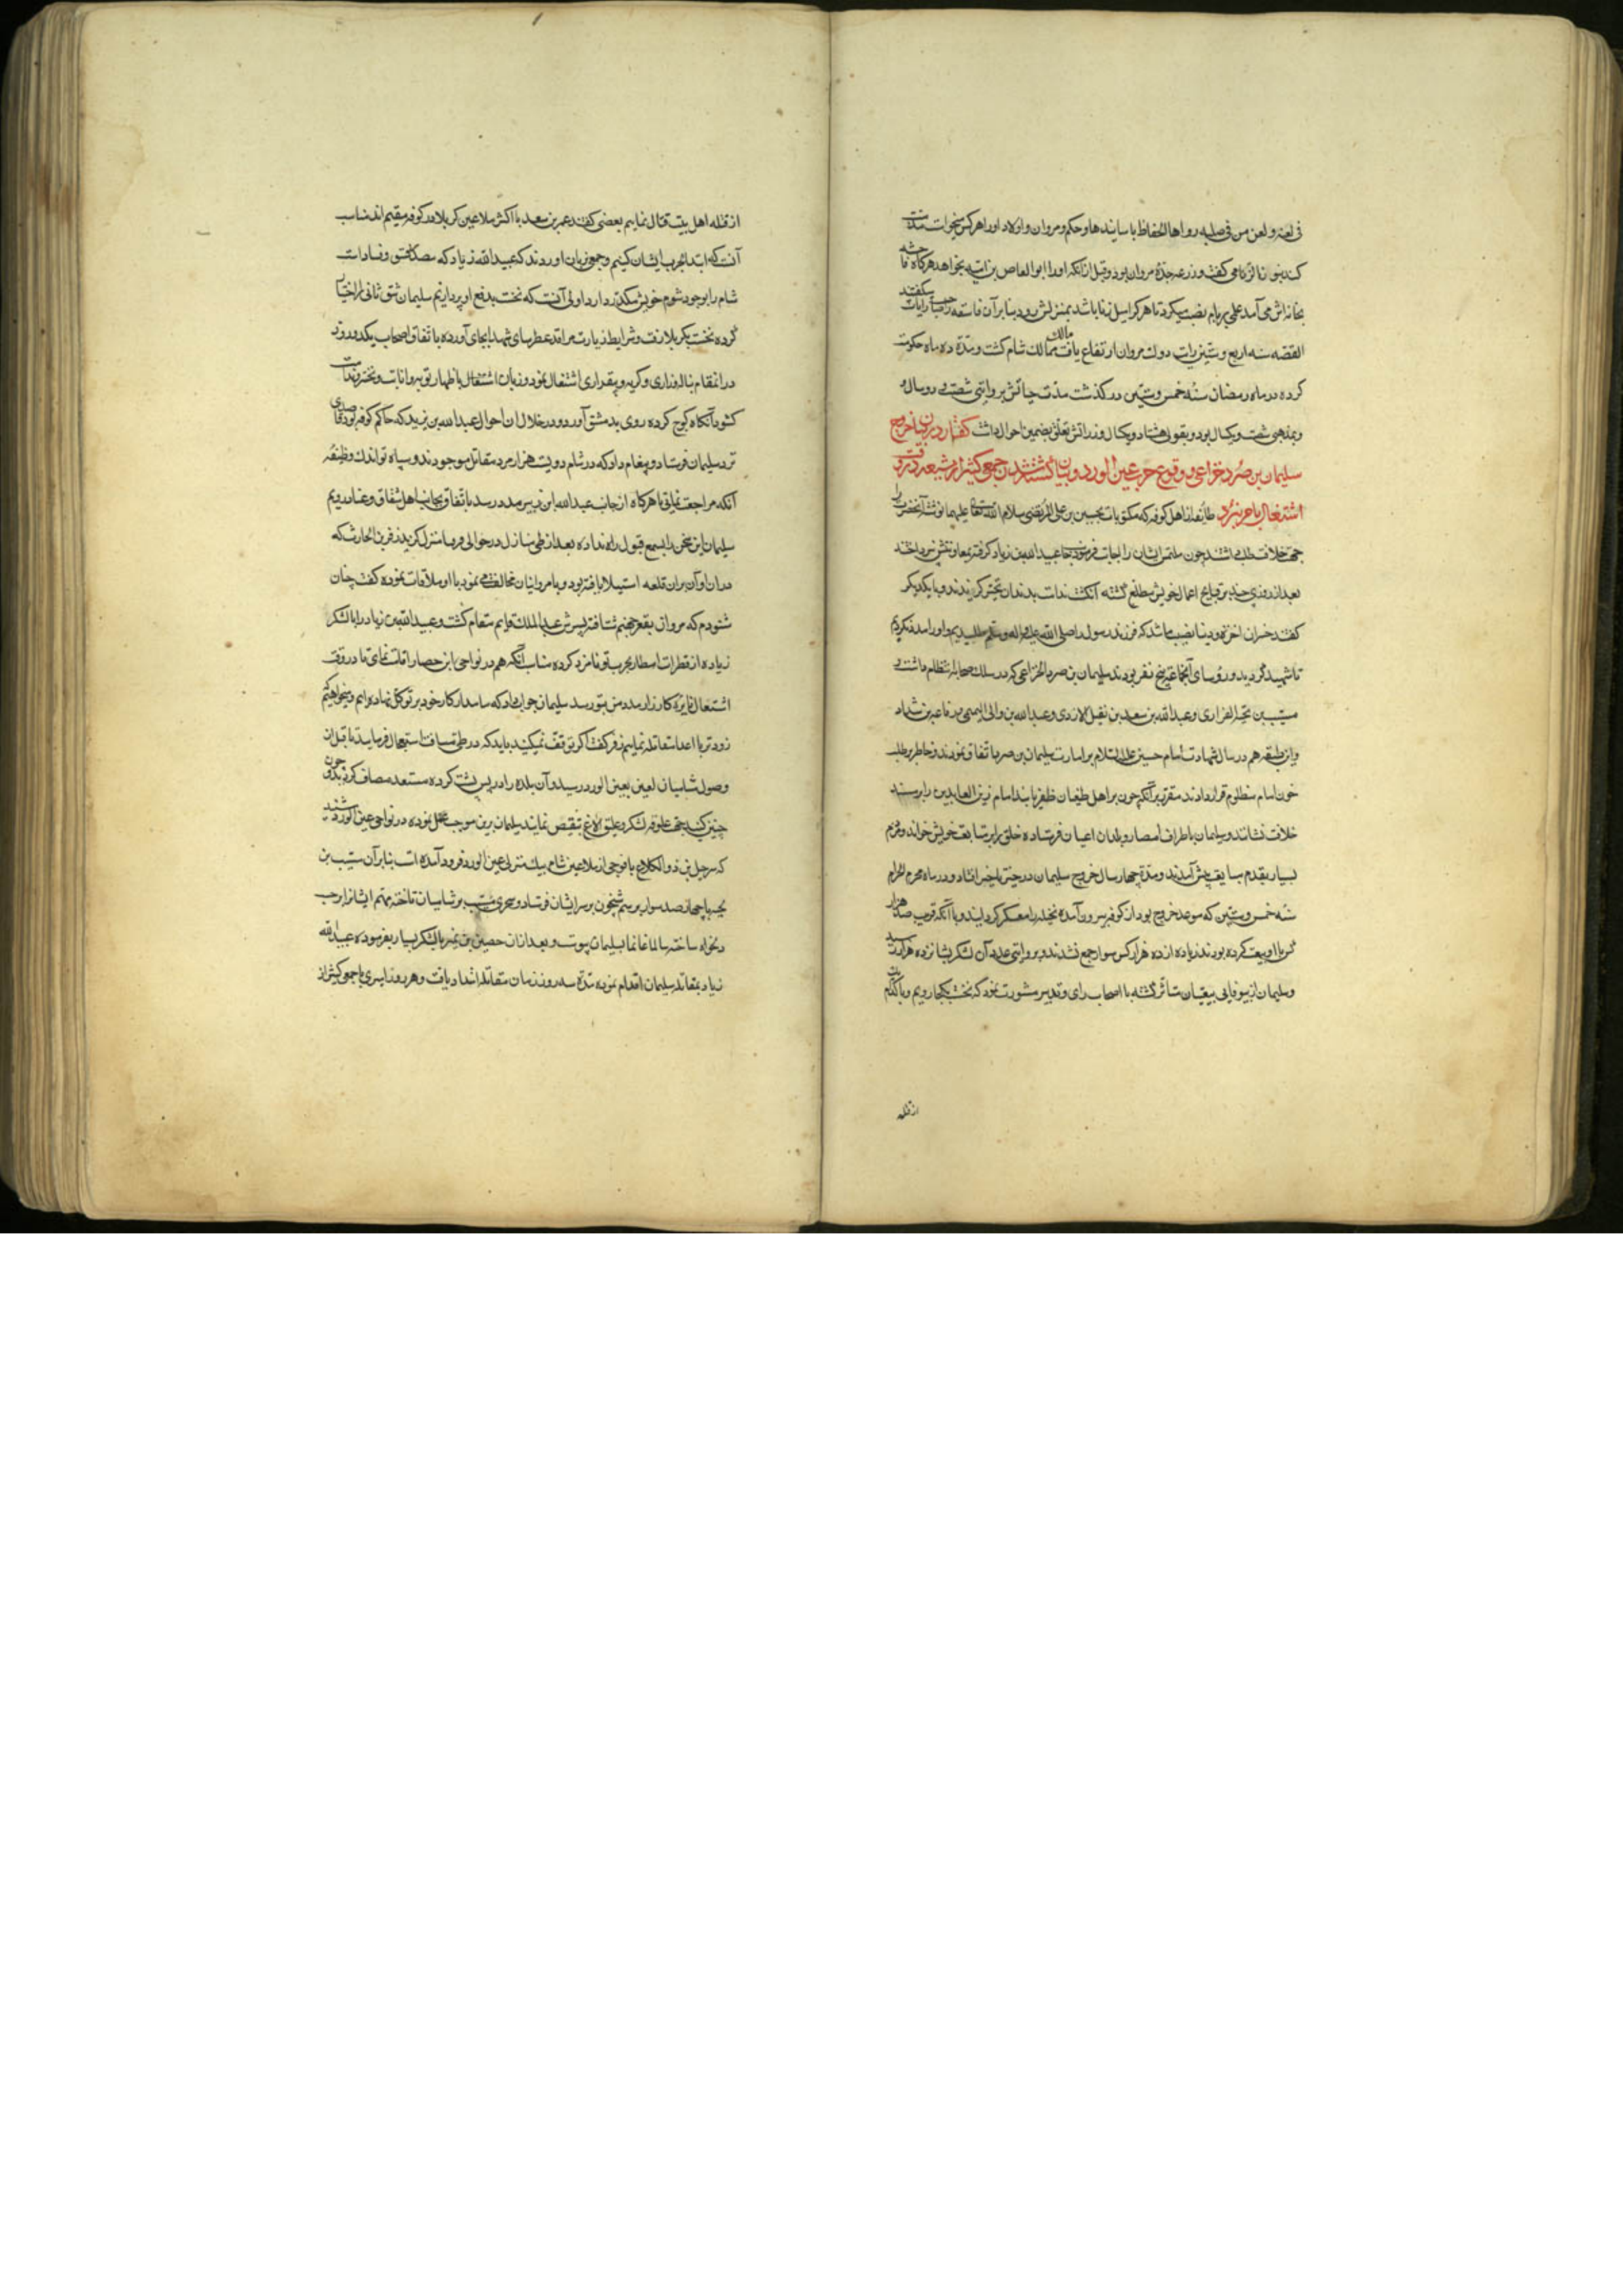 فی لعنه و لعن من فی صلبه رواها الحفاظ باسانیدها و حکم و مروان و اولاد او را هر کس میخواست مذمت
کند بنو الزرقا می گفت و زرقا جدهٔ مروان بود و قبل از آنکه او را ابو العاص بن امیه بخواهد هرگاه فاحشه
بخانه اش می آمد علمی بر بام نصب میکرد تا هر کرا میل زنا باشد بمنزلش رود بنابر آن فاسقه را صاحب رایات میگفتند
القصه سنه اربع و ستین رایت دولت مروان ارتفاع یافت مالک ممالک شام کشت و مدة ده ماه حکومت
کرده در ماه رمضان سنهٔ خمس و ستین در کذشت مدت حیاتش بروایتی شصت و دو سال و
بمذهبی شصت و یکسال بود و بقولی هشتاد و یکسال وزراتش تعلق بضمین احوال داشت کفتار در بیان خروج
سلیمان بن صرد خزاعی و وقوع حرب عین الورد و بیان کشته شدن جمعی کثیر از شیعه در وقت
اشتغال با حرب نبرد طائفه از اهل کوفه که مکتوبات بحسین بن علی المرتضی سلام الله تعالی علیهما نوشته آنحضرت را
جهة خلافت طلب داشتند چون ملتمس ایشان را اجابت فرمود بجانب عبید الله بن زیاد کرفته بمعاونتش نپرداختند
بعد از روزی چند بر قبایح اعمال خویش مطلع کشته انکشت ندامت بدندان تحیر کزیدند و با یکدیکر
کفتند خسران اخرة و دنیا نصیب ما شد که فرزند رسول را صلی الله علیه و اله و سلم طلبیدیم و او را مدد نکردیم
تا شهید کردید و روسای آنجماعة پنج نفر بودند سلیمان بن صرد الخزاعی که در سلک صحابه انتظام داشت و
مسیب بن نجبه الفزاری و عبد الله بن سعد بن نفیل الازدی و عبد الله بن والی التیمی و رفاعه بن شداد
و این طبقه هم در سال شهادت امام حسین علیه السلام بر امارت سلیمان بن صرد اتفاق نمودند و خاطر بر طلب
خون امام مظلوم قرار دادند مقرر بر آنکه چون بر اهل طغیان ظفر یابند امام زین العابدین را بر مسند
خلافت نشانند و سلیمان باطراف امصار و بلدان اعیان فرستاده خلق را بر متابعت خویش خواند و مردم
بسیار بقدم مبایعت پیش آمدند و مدة چهار سال خروج سلیمان در حیز تاخیر افتاد و در ماه محرم الحرام
سنه خمس و ستین که موعد خروج بود از کوفه بیرون آمده نخیله را معسکر کردانیدند و با آنکه قریب صد هزار
کس با او بیعت کرده بودند زیاده از ده هزار کس سوار جمع نشدند و بروایتی عدد آن لشکر بشانزده هزار رسید
و سلیمان از بیوفایی بیعتیان متاثر کشته با اصحاب رای و تدبیر مشورت نمود که نخست بکجا رویم و با کدام
از قتله
از قتله اهل بیت قتال نماییم بعضی کفتند عمر بن سعد با اکثر ملاعین کربلا در کوفه مقیم اند مناسب
آنست که ابتدا بحرب ایشان کنیم و جمعی بر زبان اوردند که عبید الله زیاد که مصدر فسق و فسادات
شام را بوجود شوم خویش مکدر دارد اولی آنست که نخست بدفع او پردازیم سلیمان شق ثانی را اختیار
کرده نخست بکربلا رفت و شرایط زیارت مراقد عطرسای شهدا بجای آورده باتفاق اصحاب یکدو روز
در انمقام بناله و زاری و کریه و بیقراری اشتغال نمود و زبان اشتغال باظهار توبه و انابت و تحسر و ندامت
کشود آنکاه کوچ کرده روی بدمشق آورد و در خلال ان احوال عبد الله بن یزید که حاکم کوفه بود قاصدی
نزد سلیمان فرستاد و پیغام داد که در شام دویست هزار مرد مقاتل موجودند و سپاه تو اندک وظیفه
آنکه مراجعت نمایی تا هرکاه از جانب عبد الله ابن زبیر مدد رسد باتفاق بجانب اهل شقاق و عناد رویم
سلیمان این سخن را بسمع قبول راه نداده بعد از طی منازل در حوالی قرقیسا منزل کزید زفر بن الحارث که
در ان اوان بران قلعه استیلا یافته بود و با مروانیان مخالفت می نمود با او ملاقات نموده کفت چنان
شنودم که مروان بقعر جهنم شتافته پسرش عبد الملک قایم مقام کشت و عبید الله بن زیاد را با لشکر
زیاده از قطرات امطار بحرب تو نامزد کرده مناسب آنکه هم در نواحی این حصار اقامت نمای تا در وقت
اشتعال نایرهٔ کارزار مدد من بتو رسد سلیمان جواب داد که ما مدار کار خود بر توکل نهاده ایم و میخواهیم
زودتر با اعدا مقاتله نماییم زفر کفت اکر توقف نمیکنید باید که در طی مسافت استعجال فرمایید تا قبل از
وصول شامیان لعین بعین الورد رسید و آن بلده را در پس پشت کرده مستعد مصاف کردید و چون
چنین کنید جهة علوفه لشکر و علیق الاغ نقیص نمایند سلیمان برین موجب عمل نموده در نواحی عین الورد شنید
که شرحبیل بن ذو الکلاع با فوجی از ملاعین شام بیک منزلی عین الورد فرود آمده است بنابر آن مسیب بن
نجبه با چهار صد سوار برسم شبخون بر سر ایشان فرستاد و سحری مسیب بر شامیان تاخته مهم ایشانرا بر حسب
دلخواه ساخته سالما غانما بسلیمان پیوست و بعد از ان حصین بن نمیر با لشکر بسیار بفرموده عبید الله
زیاد بمقاتله سلیمان اقدام نموده مدة سه روز زمان مقاتله امتداد یافت و هر روز امیری با جمعی کثیر از